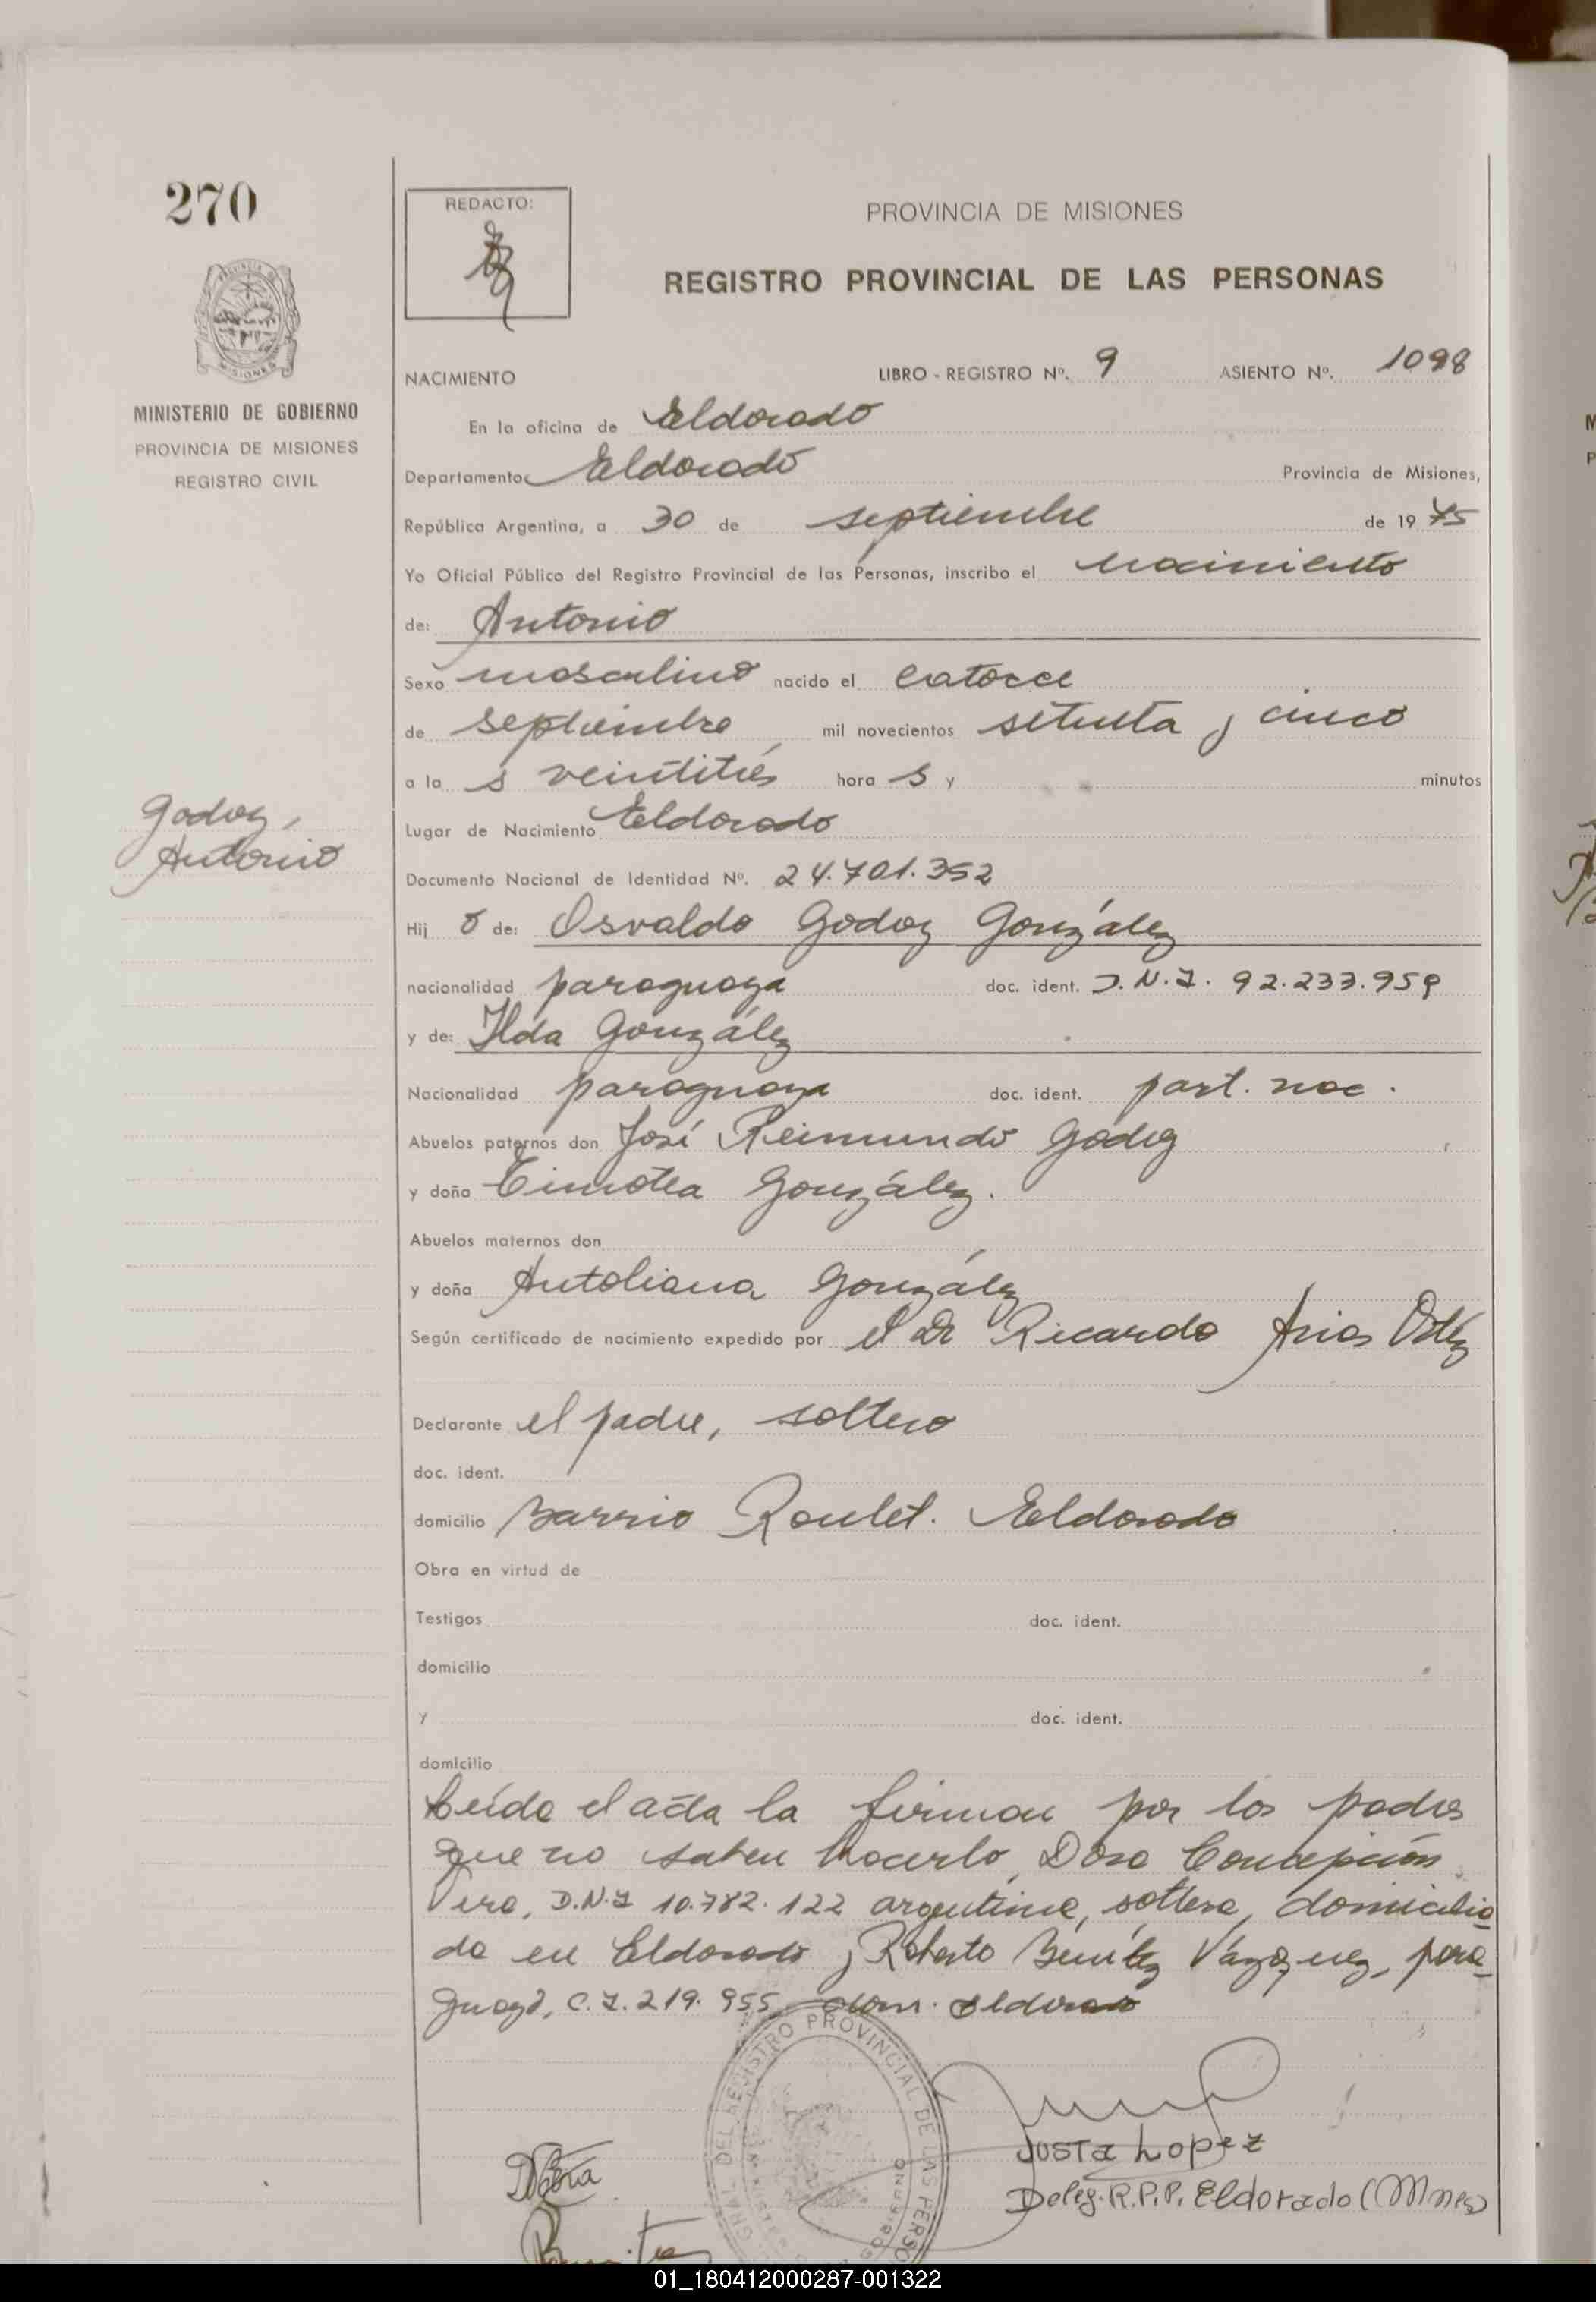 270
REDACTO:
PROVINCIA DE MISIONES
REGISTRO PROVINCIAL DE LAS PERSONAS
MINISTERIO DE GOBIERNO
PROVINCIA DE MISIONES
REGISTRO CIVIL
NACIMIENTO LIBRO - REGISTRO Nº. 9 ASIENTO Nº. 1098
En la oficina de Eldorado
Departamento Eldorado Provincia de Misiones,
República Argentina, a 30 de septiembre de 19 75
Yo Oficial Público del Registro Provincial de las Personas, inscribo el nacimiento
de: Antonio
Sexo masculino nacido el catorce
de septiembre mil novecientos setenta y cinco
a la s veintitrés hora s y minutos
Godoy,
Antonio
Lugar de Nacimiento Eldorado
Documento Nacional de Identidad Nº. 24.701.352
Hij o de: Osvaldo Godoy González
nacionalidad paraguaya doc. ident. D.N.I. 92.233.959
y de: Ilda González
Nacionalidad paraguaya doc. ident. part. nac.
Abuelos paternos don José Reimundo Godoy
y doña Timotea González.
Abuelos maternos don
y doña Antoliana González
Según certificado de nacimiento expedido por el Dr Ricardo Arias Ortíz
Declarante el padre, soltero
doc. ident.
domicilio Barrio Roulet. Eldorado
Obra en virtud de
Testigos doc. ident.
domicilio
y doc. ident.
domicilio
Leída el acta la firman por los padres
que no saben hacerlo, Dora Concepción
Vera, D.N.I 10.782.122 argentina, soltera, domicilia
da en Eldorado y Roberto Benítez Vázquez, para-
guayo, C.I. 219.955, dom. Eldorado
DEL REGISTRO PROVINCIAL DE LAS PERSO
GOBIERNO
DVera
Benitez
Justa Lopez
Deleg. R.P.P. Eldorado (Mnes)
01_180412000287-001322